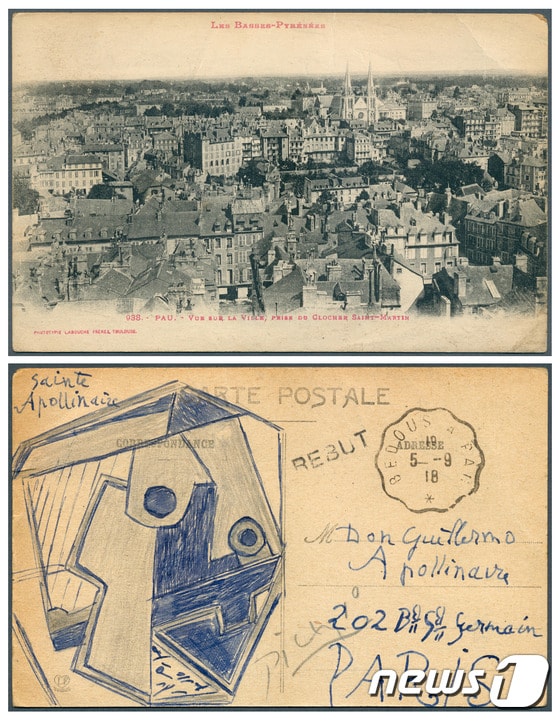 LES BASSES-PYRÉNÉES
938. - PAU. - VUE SUR LA VILLE, PRISE DU CLOCHER SAINT-MARTIN
PHOTOTYPIE LABOUCHE FRÈRES, TOULOUSE.
Sainte
Apollinaire
CARTE POSTALE
CORRESPONDANCE
REBUT
ADRESSE
BEDOUS A PAU
18
5 - 9
18
*
M Don Guillermo
Apollinaire
202 Bd St Germain
Picasso
PARIS
news1